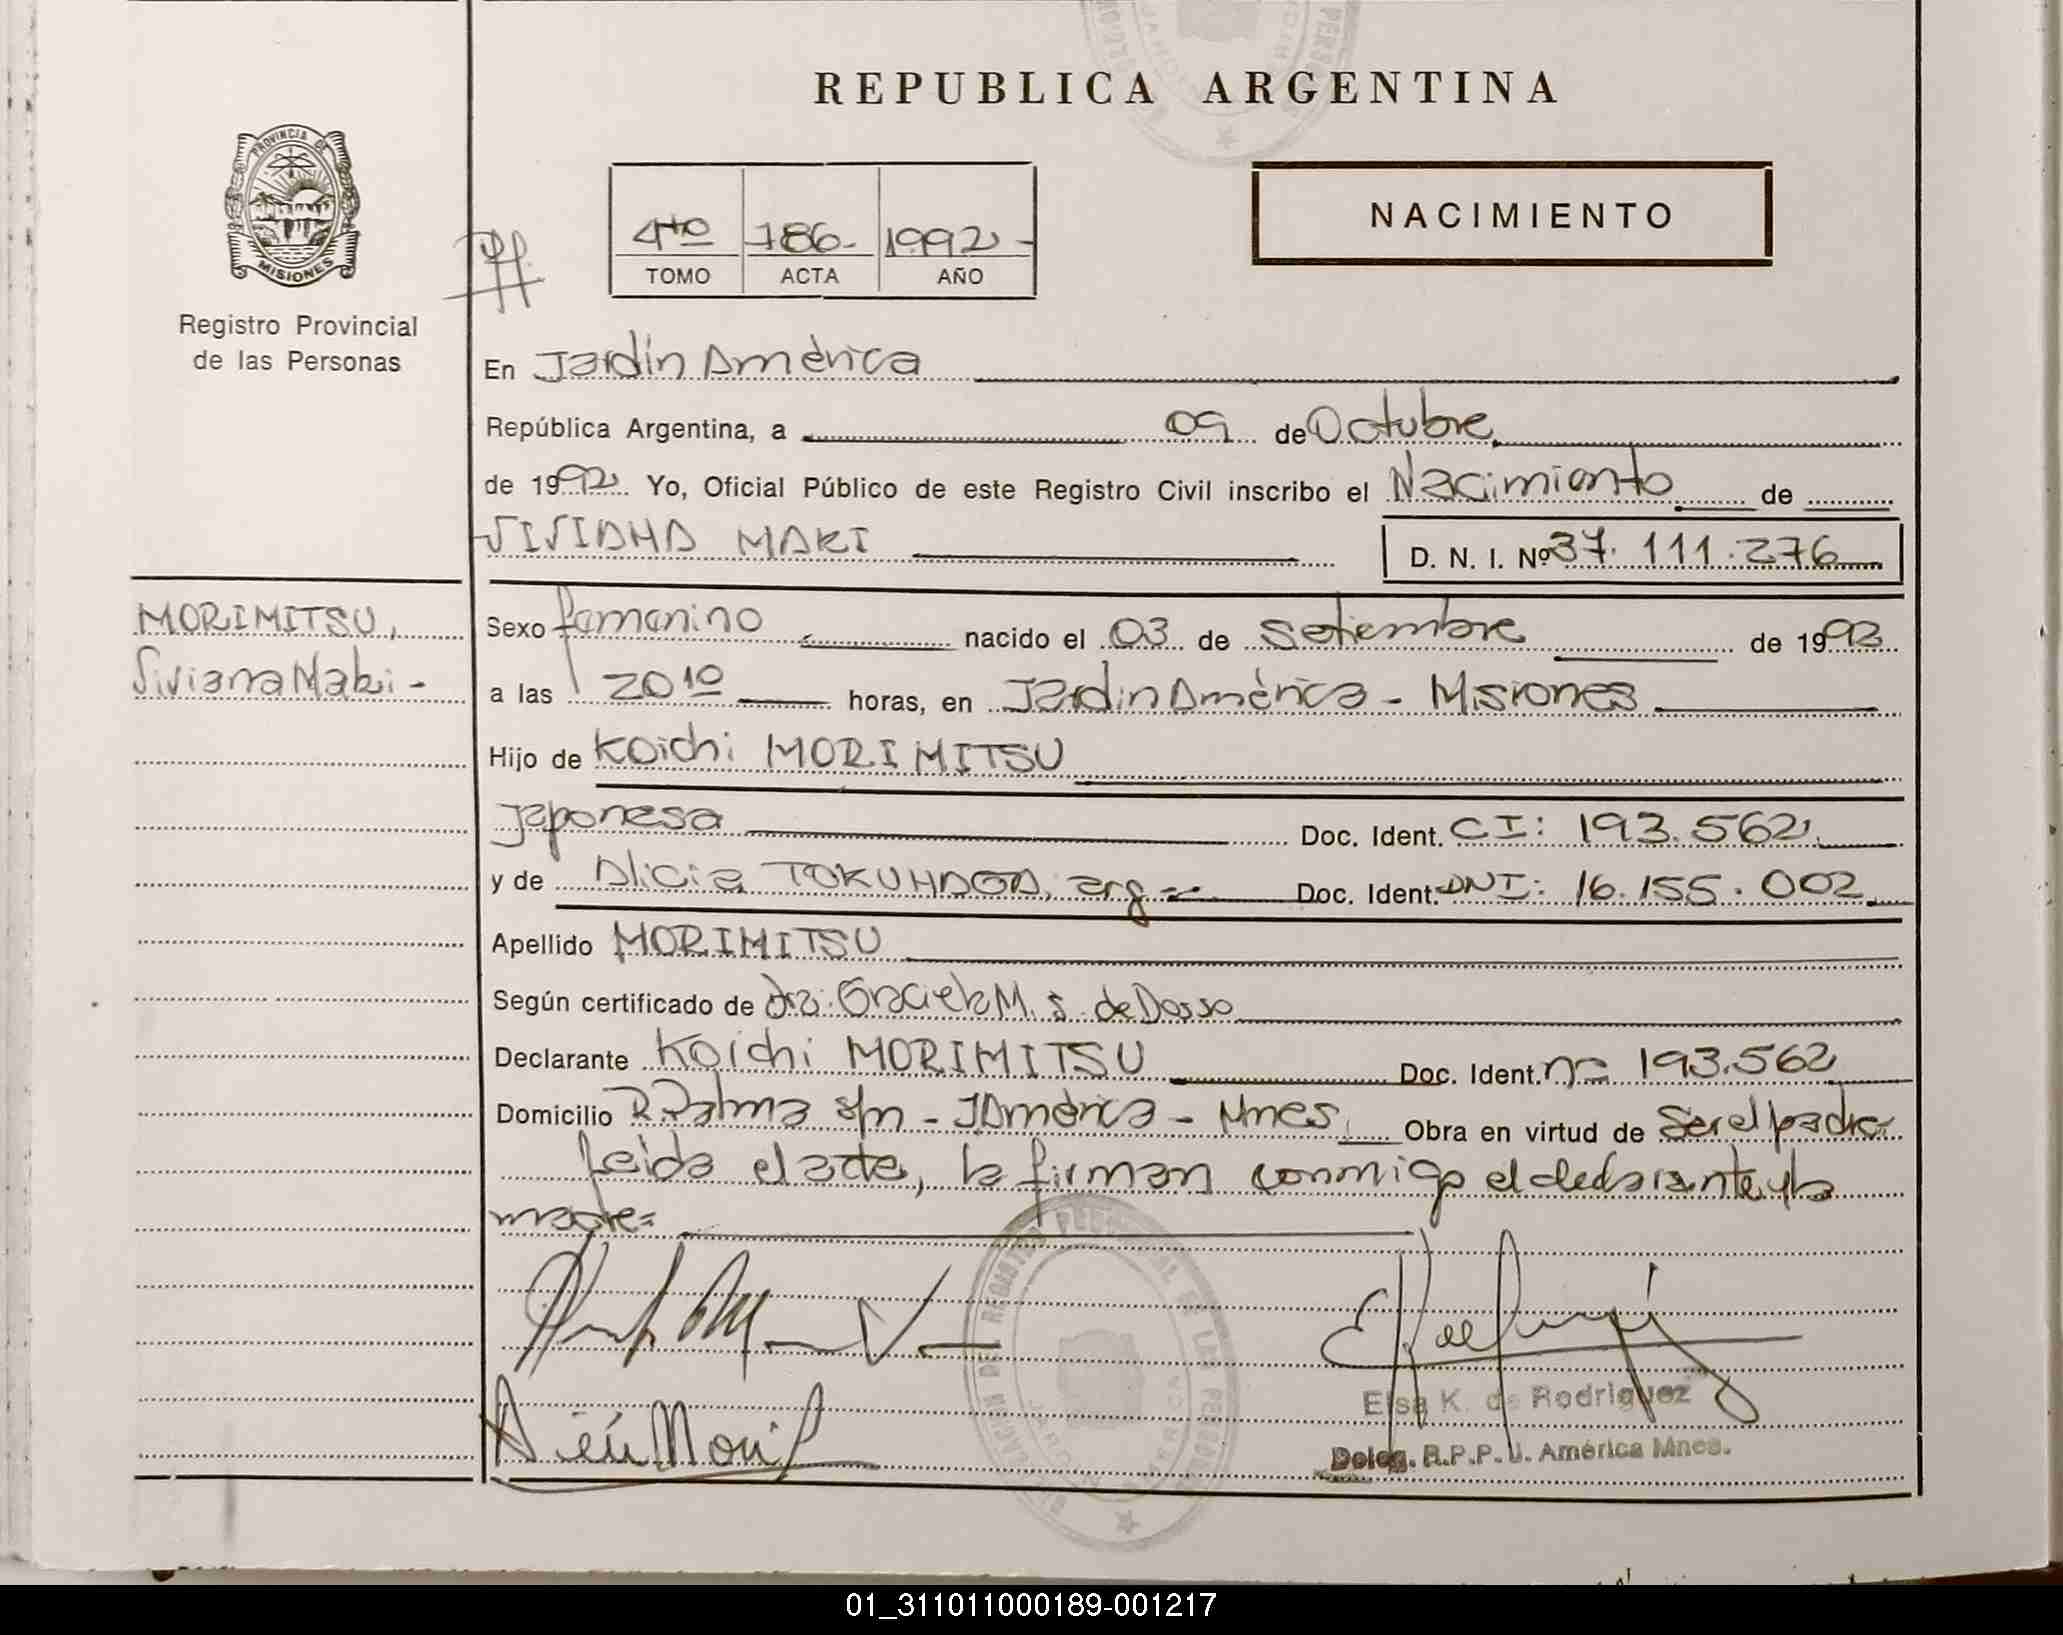 REPUBLICA ARGENTINA
PROVINCIA DE
MISIONES
Registro Provincial
de las Personas
4to 786- 1992-
TOMO ACTA AÑO
NACIMIENTO
En Jardín América
República Argentina, a 09 de Octubre
de 1992 Yo, Oficial Público de este Registro Civil inscribo el Nacimiento de
VIVIANA MAKI D. N. I. Nº 37.111.276
MORIMITSU,
Viviana Maki -
Sexo femenino nacido el 03 de Setiembre de 1992
a las 20 10 horas, en Jardín América - Misiones
Hijo de Koichi MORIMITSU
Japonesa Doc. Ident. CI: 193.562
y de Alicia TOKUNAGA, arg Doc. Ident. DNI: 16.155.002
Apellido MORIMITSU
Según certificado de Dra. Graciela M. S. de Dosso
Declarante Koichi MORIMITSU Doc. Ident. nº 193.562
Domicilio R. Palma s/n - J América - Mnes. Obra en virtud de Ser el padre
Leida el acta, la firman conmigo el declarante y la
madre=
Elsa K. de Rodriguez
Deleg. R.P.P. J. América Mnes.
01_311011000189-001217